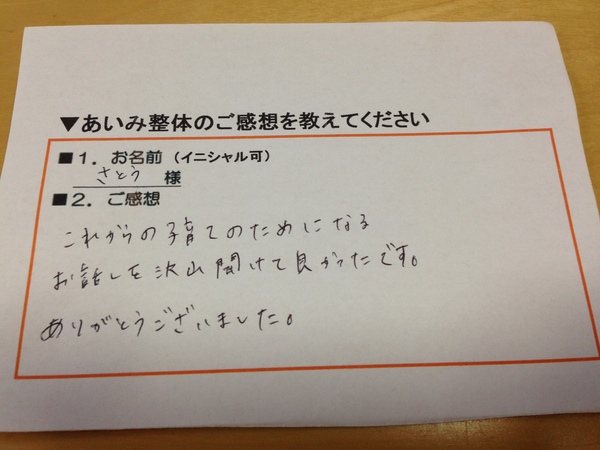 ▼あいみ整体のご感想を教えてください
■1．お名前（イニシャル可）
さとう 様
■2．ご感想
これからの子育てのためになる
お話しを沢山聞けて良かったです。
ありがとうございました。